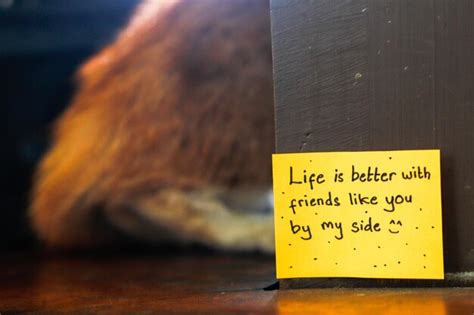 Life is better with
friends like you
by my side ^^